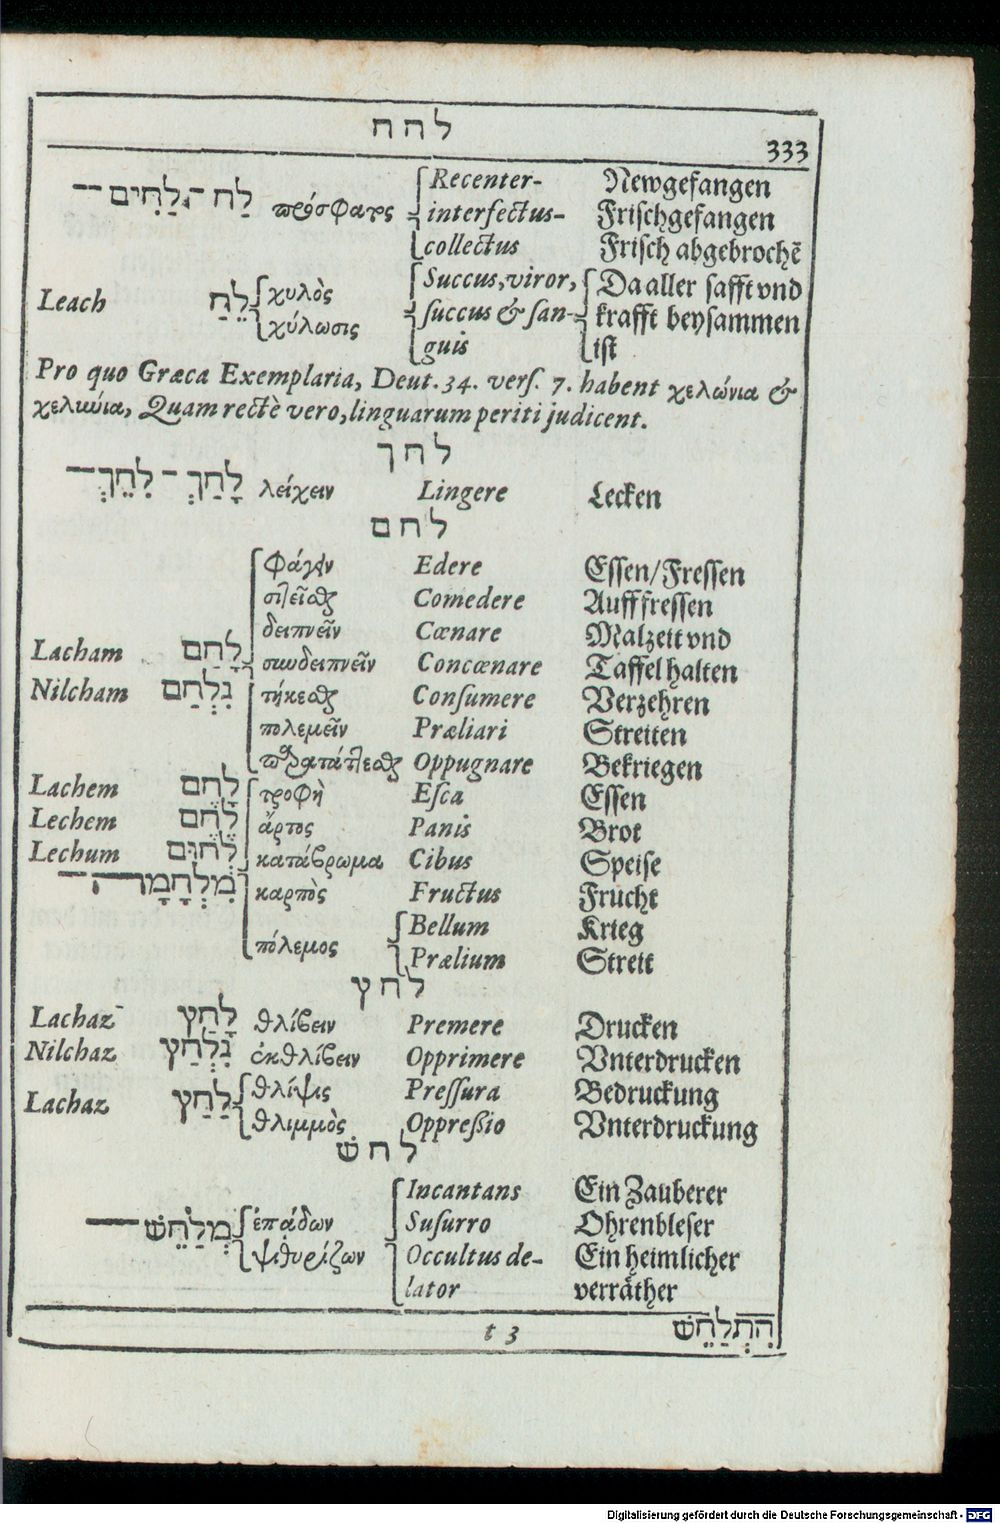 לחח
333
לַח -, לַחִים -- πρόσφατος Recenter- Newgefangen
interfectus- Frischgefangen
collectus Frisch abgebrochẽ
Leach לֵחַ χυλὸς Succus, viror, Da aller safft vnd
χύλωσις succus & san- krafft beysammen
guis ist
Pro quo Græca Exemplaria, Deut. 34. vers. 7. habent χελώνια &
χελιύια, Quam rectè vero, linguarum periti judicent.
לחך
לָחַךְ - לִחֵךְ -- λείχειν Lingere Lecken
לחם
φάγειν Edere Essen/Fressen
σιτεῖσθαι Comedere Aufffressen
δειπνεῖν Cœnare Malzeit vnd
Lacham לָחַם συνδειπνεῖν Concœnare Taffel halten
Nilcham נִלְחַם τήκεσθαι Consumere Verzehren
πολεμεῖν Præliari Streiten
παρατάττεσθαι Oppugnare Bekriegen
Lachem לָחֶם τροφὴ Esca Essen
Lechem לֶחֶם ἄρτος Panis Brot
Lechum לְחוּם κατάβρωμα Cibus Speise
מִלְחָמָה -- καρπὸς Fructus Frucht
πόλεμος Bellum Krieg
Prælium Streit
לחץ
Lachaz לָחַץ θλίβειν Premere Drucken
Nilchaz נִלְחַץ ἐκθλίβειν Opprimere Vnterdrucken
Lachaz לַחַץ θλίψις Pressura Bedruckung
θλιμμὸς Oppreßio Vnterdruckung
לחשׁ
Incantans Ein Zauberer
מְלַחֵשׁ -- ἐπᾴδων Susurro Ohrenbleser
ψιθυρίζων Occultus de- Ein heimlicher
lator verräther
t 3 הִתְלַחֵשׁ
Digitalisierung gefördert durch die Deutsche Forschungsgemeinschaft - DFG